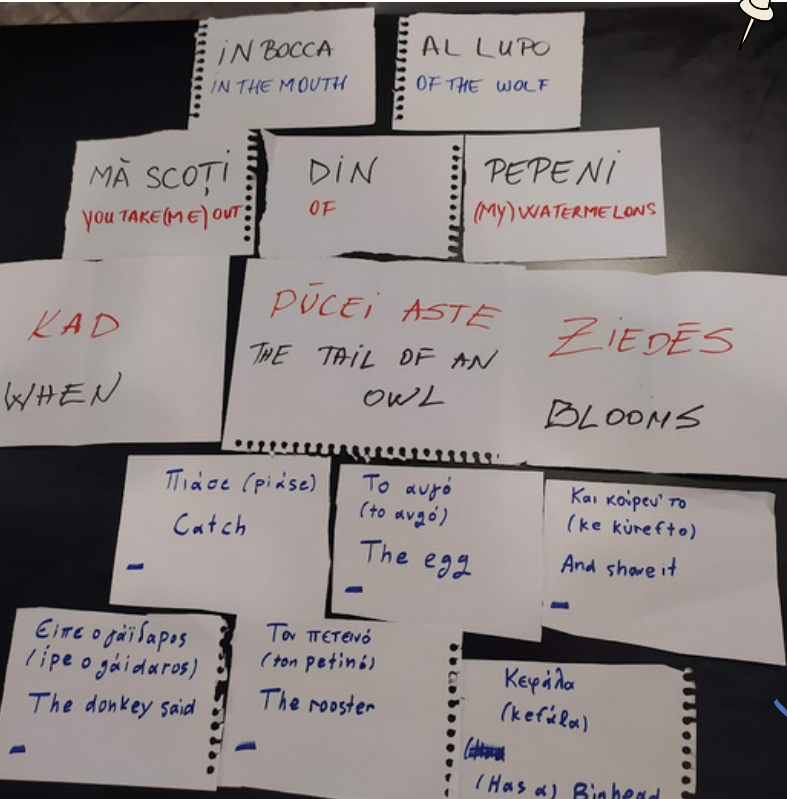 IN BOCCA
IN THE MOUTH
AL LUPO
OF THE WOLF
MĂ SCOȚI
YOU TAKE(ME) OUT
DIN
OF
PEPENI
(MY) WATERMELONS
KAD
WHEN
PŪCEI ASTE
THE TAIL OF AN
OWL
ZIEDĒS
BLOOMS
Πιάσε (piáse)
Catch
Το αυγό
(to avgó)
The egg
Και κούρευ' το
(ke kúrefto)
And shave it
Είπε ο γάϊδαρος
(ípe o gáidaros)
The donkey said
Τον πετεινό
(ton petinó)
The rooster
Κεφάλα
(kefála)
(Has a) Bighead